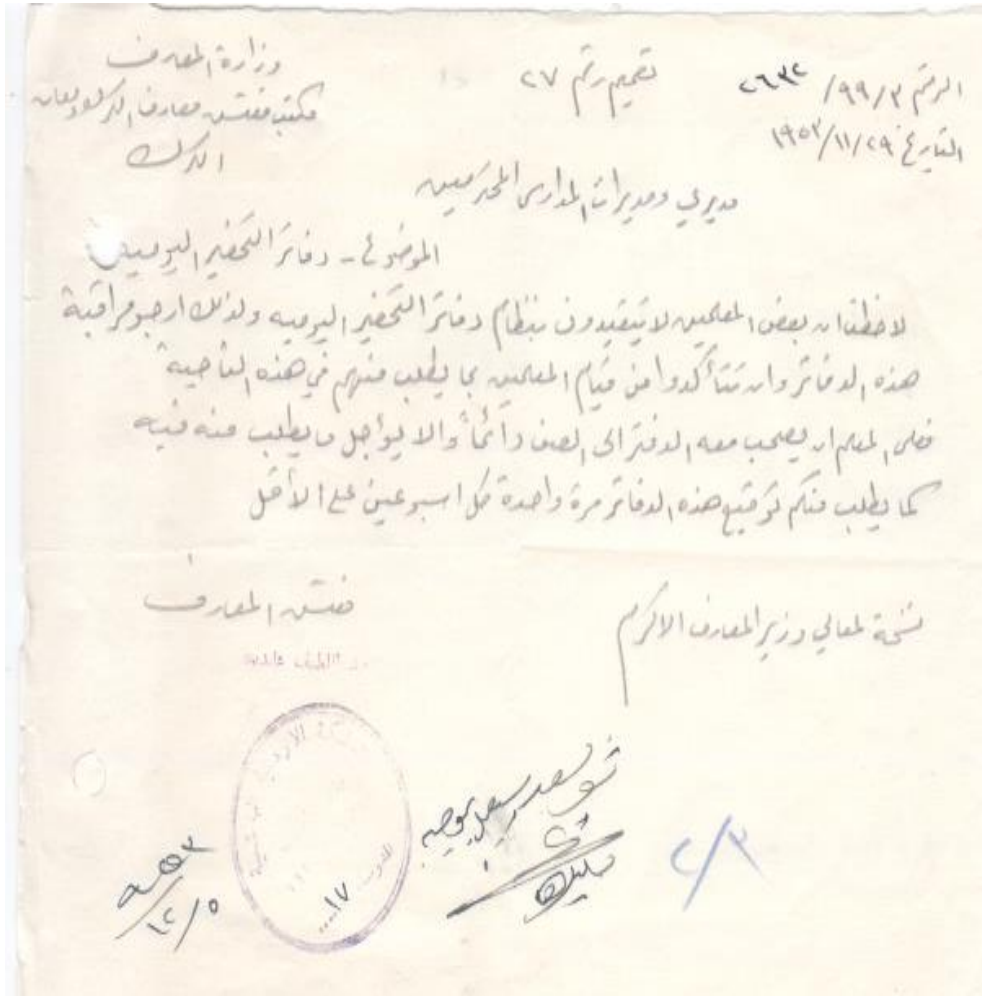 وزارة المعارف
مكتب مفتش معارف الكرك ومعان
الكرك
تعميم رقم ٢٧
الرقم ٩٩/٣/ ٢٦٣٢
التاريخ ١٩٥٣/١١/٢٩
مديري ومديرات المدارس المحترمين
الموضوع - دفاتر التحضير اليومية
لاحظت ان بعض المعلمين لا يتقيدون بنظام دفاتر التحضير اليوميه ولذلك ارجو مراقبة
هذه الدفاتر وان تتأكدوا من قيام المعلمين بما يطلب منهم في هذه الناحية
فعلى المعلم ان يصحب معه الدفتر الى الصف دائماً والا يؤاجل ما يطلب منه فيه
كما يطلب منكم توقيع هذه الدفاتر مرة واحدة كل اسبوعين على الأقل
مفتش المعارف
نسخة لمعالي وزير المعارف الاكرم
١٧
٢/٣
١٢/٥